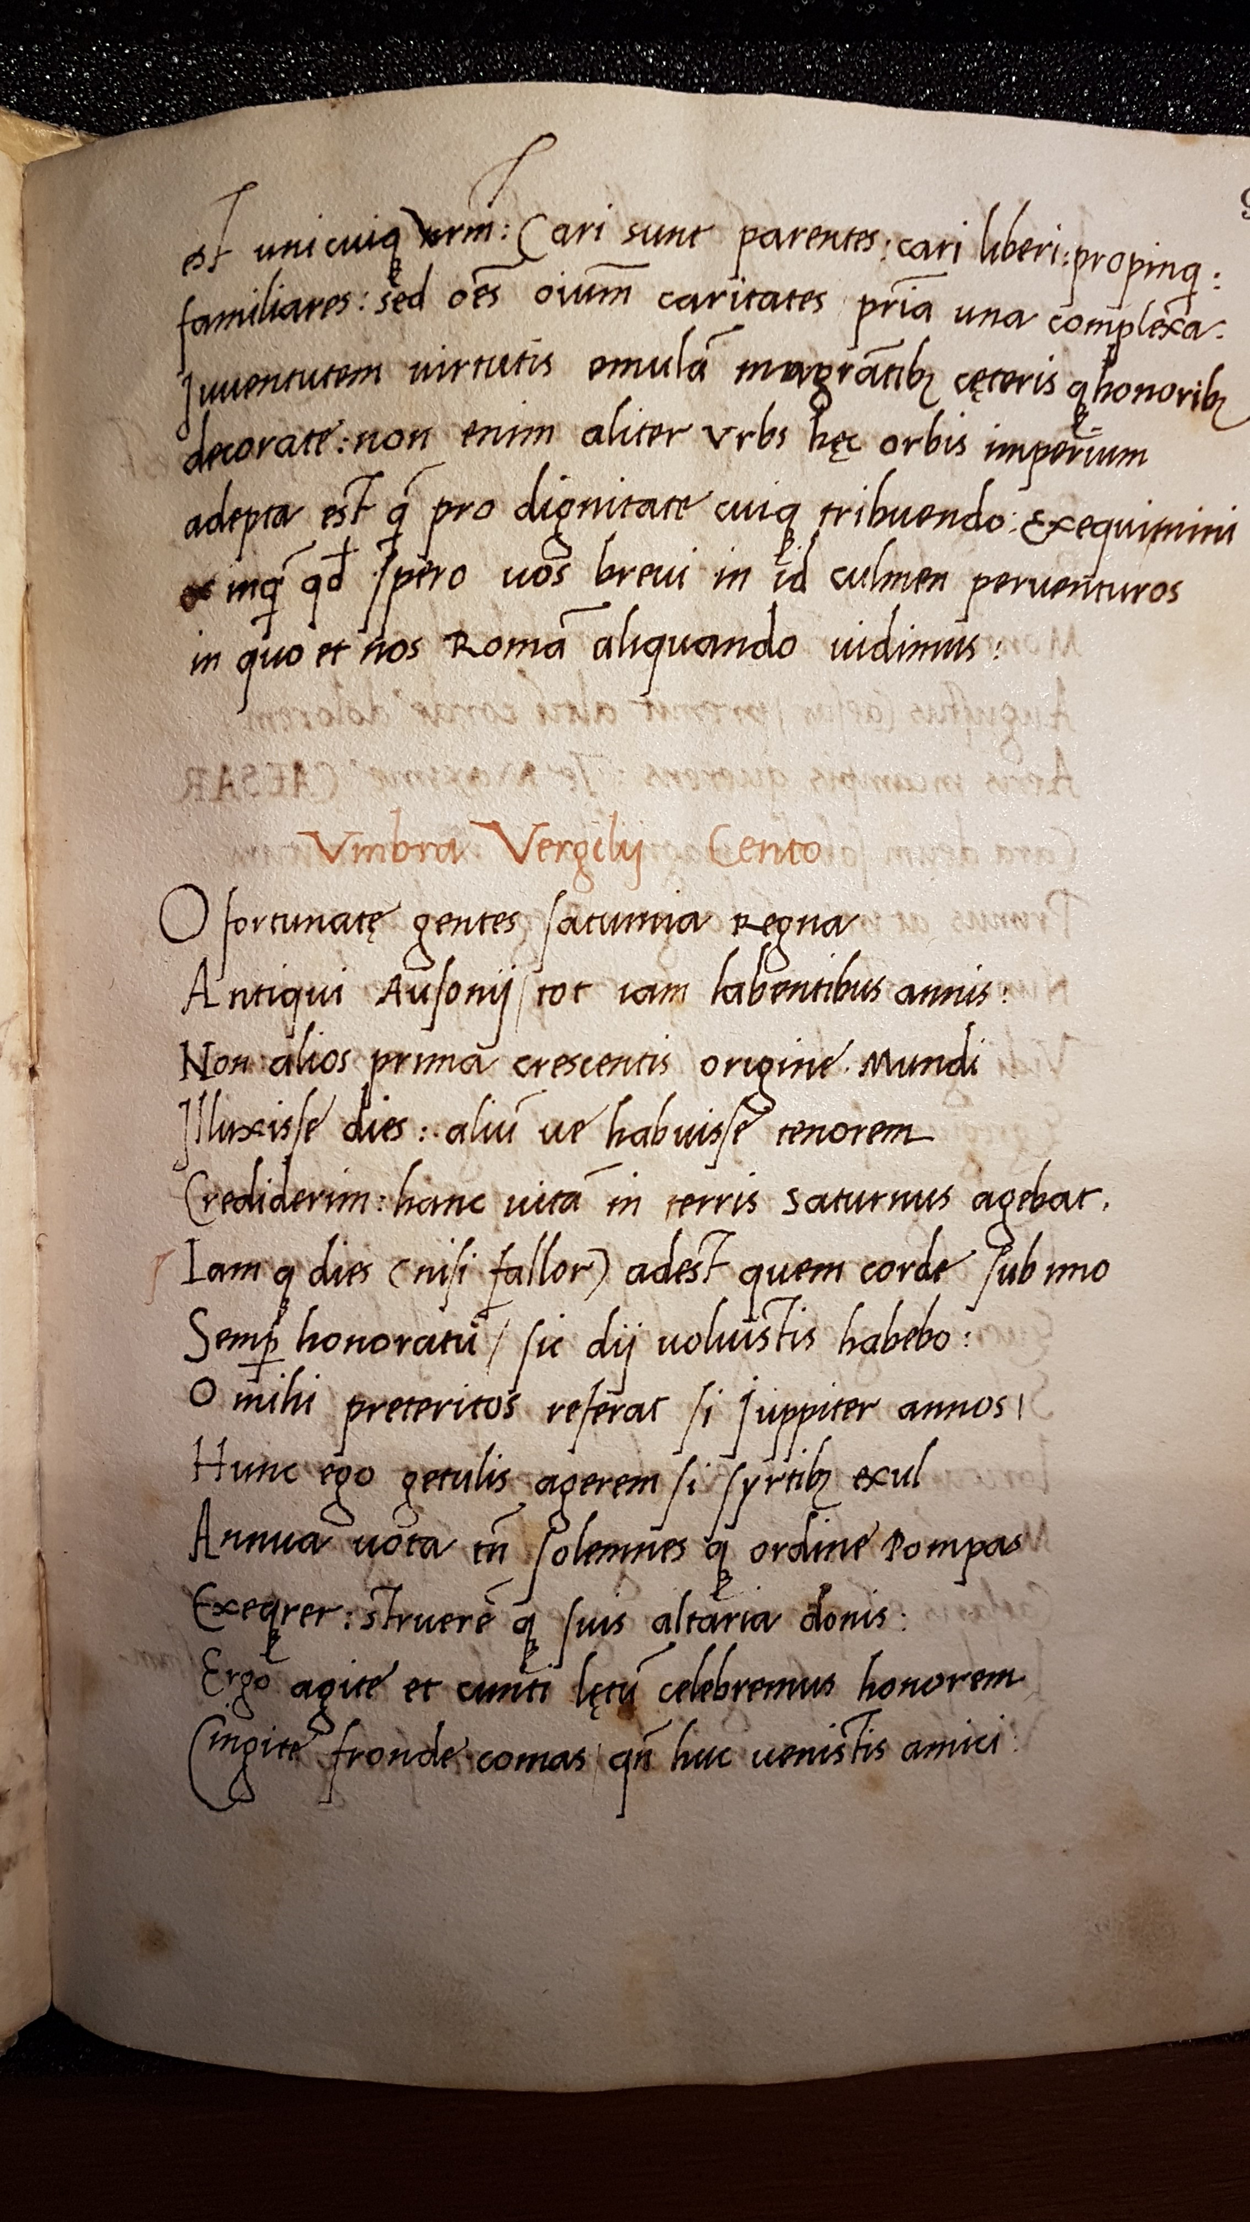 est unicuiq̨ urm̄: Cari sunt parentes: cari liberi: propinq̨:
familiares: sed oēs oium̄ caritates pr̄ia una complexa.
Iuuentutem uirtutis emulā magrātibꝫ cęteris q̨ honoribꝫ
decorate: non enim aliter Vrbs hęc orbis imperium
adepta est q̄ pro dignitate cuiq̨ tribuendo: Exequimini
inq̄ qd̄ spero uos breui in id culmen peruenturos
in quo et nos Romā aliquando uidimus:
Vmbra Vergilij Cento
O fortunatę gentes saturnia Regna
Antiqui Ausonij / tot iam labentibus annis:
Non alios prima crescentis origine Mundi
Illuxisse dies: aliū ue habuisse tenorem
Crediderim: hanc uitā in terris Saturnus agebat.
Iam q̨ dies (nisi fallor) adest quem corde sub imo
Semꝑ honoratū / sic dij uoluistis habebo:
O mihi preteritos referat si Juppiter annos /
Hunc ego getulis agerem si syrtibꝫ exul
Annua uota tn̄ solemnes q̨ ordine Pompas
Exeq̨rer: struerē q̨ suis altaria donis:
Ergo agite et cunti lętū celebremus honorem
Cingite fronde comas / qn̄ huc uenistis amici: